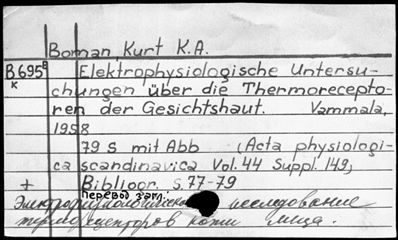 Boman, Kurt K.A.
B695 B Elektrophysiologische Untersu-
к chungen über die Thermorecepto-
ren der Gesichtshaut. Vammala,
1958
79 S mit Abb (Acta physiologi-
ca scandinavica Vol. 44 Suppl. 149)
+ Bibliogr. S. 77-79
Перевод загл.
Электрофизиологическое исследование
терморецепторов кожи лица.